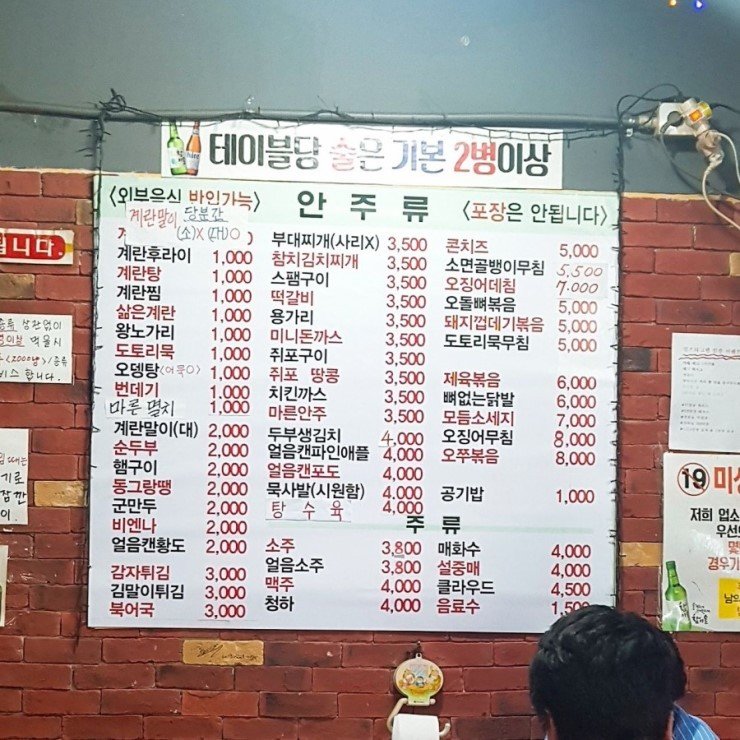 테이블당 술은 기본 2병이상
〈외부음식 반입가능〉 안 주 류 〈포장은 안됩니다〉
계란말이 당분간
(소)X (대)O
계란후라이 1,000
계란탕 1,000
계란찜 1,000
삶은계란 1,000
왕노가리 1,000
도토리묵 1,000
오뎅탕 (어묵O) 1,000
번데기 1,000
마른 멸치 1,000
계란말이(대) 2,000
순두부 2,000
햄구이 2,000
동그랑땡 2,000
군만두 2,000
비엔나 2,000
얼음캔황도 2,000
감자튀김 3,000
김말이튀김 3,000
북어국 3,000
부대찌개(사리X) 3,500
참치김치찌개 3,500
스팸구이 3,500
떡갈비 3,500
용가리 3,500
미니돈까스 3,500
쥐포구이 3,500
쥐포 땅콩 3,500
치킨까스 3,500
마른안주 3,500
두부생김치 4,000
얼음캔파인애플 4,000
얼음캔포도 4,000
묵사발(시원함) 4,000
탕 수 육 4,000
콘치즈 5,000
소면골뱅이무침 5,500
오징어데침 7,000
오돌뼈볶음 5,000
돼지껍데기볶음 5,000
도토리묵무침 5,000
제육볶음 6,000
뼈없는닭발 6,000
모듬소세지 7,000
오징어무침 8,000
오쭈볶음 8,000
공기밥 1,000
주 류
소주 3,800
얼음소주 3,800
맥주 4,000
청하 4,000
매화수 4,000
설중매 4,000
클라우드 4,500
음료수 1,500
됩니다.
상관없이
먹을시
(2000병)
합니다.
19 미성
저희 업소
우선
경우기